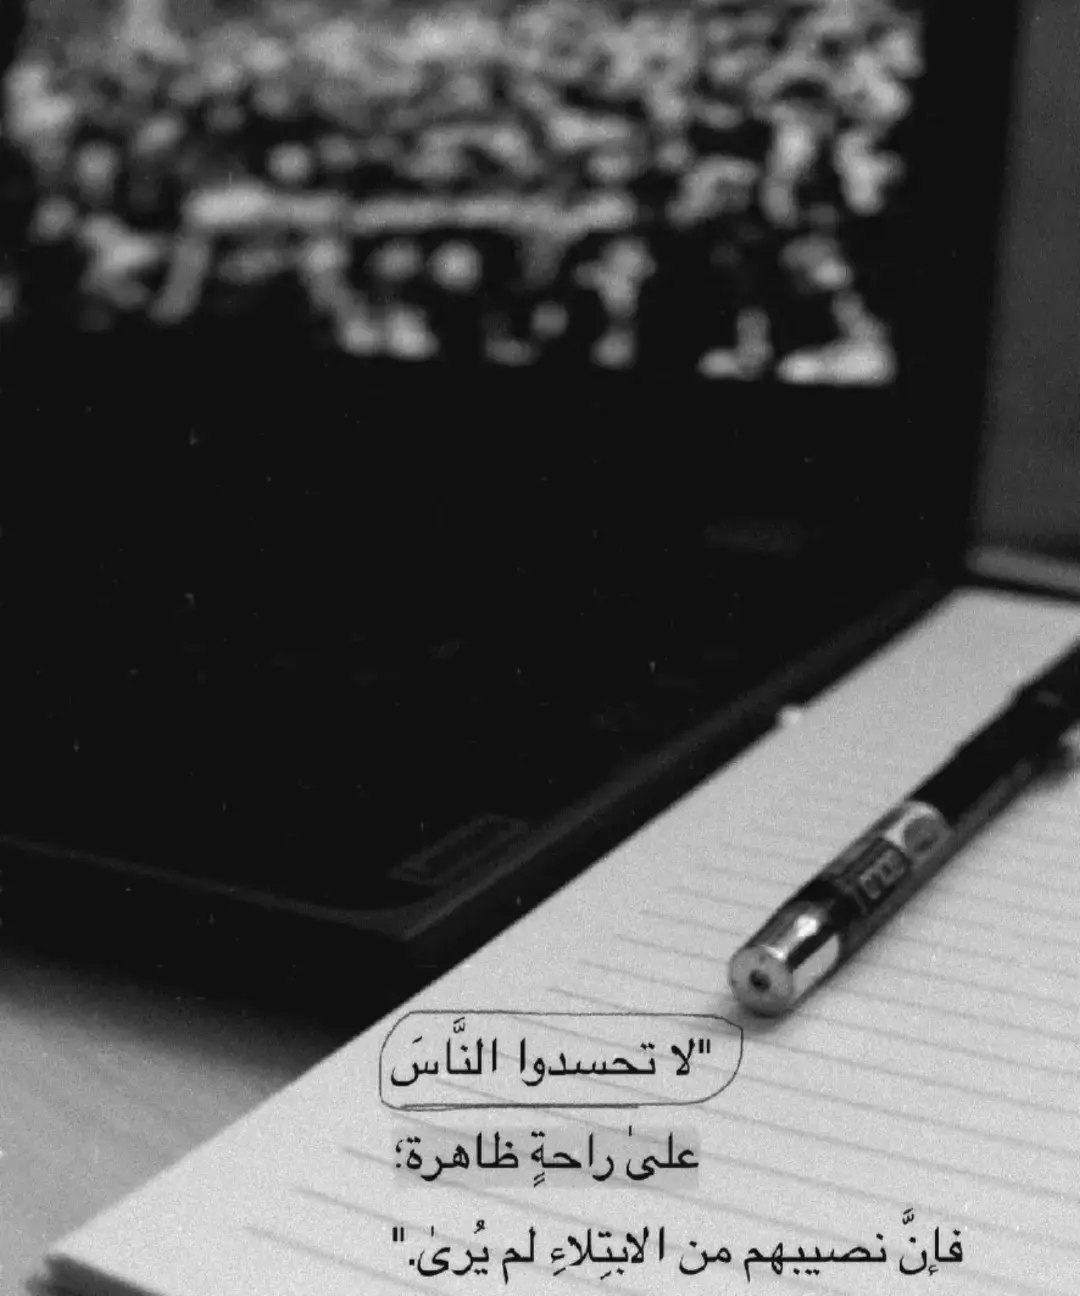 "لا تحسدوا النَّاسَ
علىٰ راحةٍ ظاهرة؛
فإنَّ نصيبهم من الابتِلاءِ لم يُرىٰ."